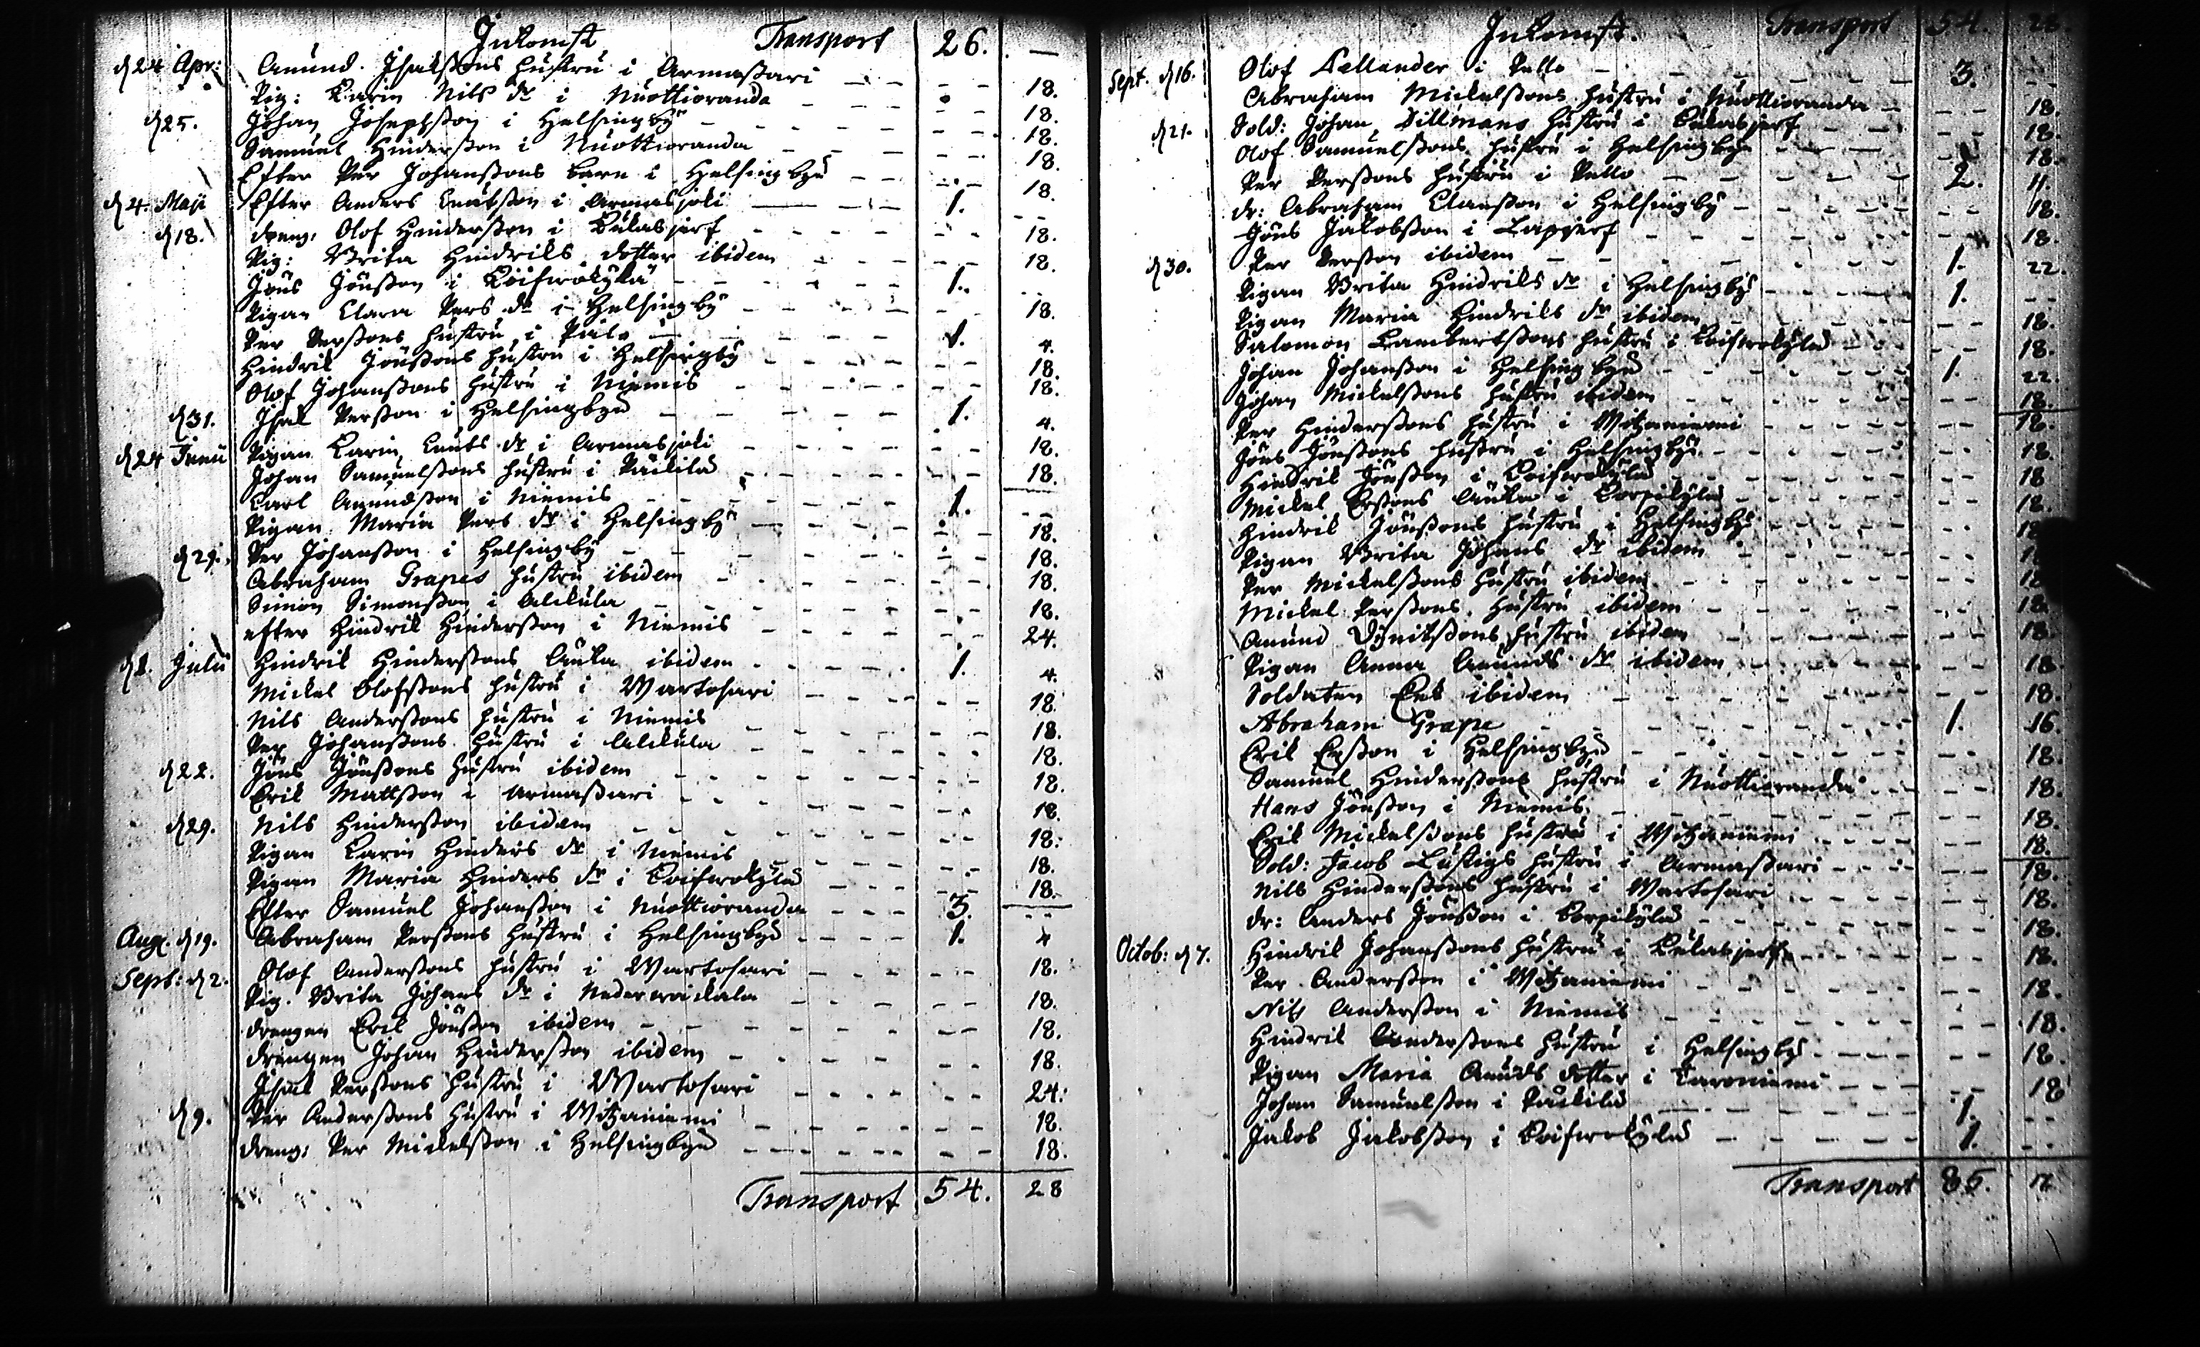 Inkomst Transport 26. —
d 24 Apr: Amund Isakssons hustru i Armassari - - - 18.
Pig: Karin Nils dr i Nuottioranda - - - 18.
d 25. Johan Josephsson i Helsingby - - - 18.
Samuel Hindersson i Nuottioranda - - - 18.
Efter Per Johanssons barn i Helsingbyn - - - 18.
d 4. Maji Efter Anders Knutsson i Armasjoki - - - 1. - -
d 18. dreng: Olof Hindersson i Kukasjerf - - - 18.
Pig: Brita Hindriks dotter ibidem - - - 18.
Jöns Jönsson i Coifwokylä - - - 1. - -
Pigan Clara Pers dr i Helsingby - - - 18.
Per Perssons hustru i - - - 1. 4.
Hindrik Jönssons hustru i Helsingby - - - 18.
Olof Johanssons hustru i Niemis - - - 18.
d 31. Isak Persson i Helsingbyn - - - 1. 4.
d 24 Junii Pigan Karin Knuts dr i Armasjoki - - - 18.
Johan Samuelssons hustru i Päckilä - - - 18.
Carl Amundsson i Niemis - - - 1. - -
Pigan Maria Pers dr i Helsingby - - - 18.
d 29. Per Johansson i Helsingby - - - 18.
Abraham Grapes hustru ibidem - - - 18.
Simon Simonsson i Alckula - - - 18.
efter Hindrik Hindersson i Niemis - - - 24.
d 8. Julii Hindrik Hinderssons Enka ibidem - - - 1. 4.
Mickel Olofssons hustru i Wartosari - - - 18
Nils Anderssons hustru i Niemis - - - 18.
Per Johanssons hustru i Alckula - - - 18.
d 22. Jöns Jönssons hustru ibidem - - - 18.
Erik Mattsson i Armassari - - - 18.
d 29. Nils Hindersson ibidem - - - 18.
Pigan Karin Hinders dr i Niemis - - - 18.
Pigan Maria Hinders dr i Coifwokylä - - - 18.
Efter Samuel Johansson i Nuottioranda - - - 3. - -
Aug. d 19. Abraham Perssons hustru i Helsingbyn - - - 1. 4
Sept: d 2. Olof Anderssons hustru i Wartosari - - - 18.
Pig. Brita Johans dr i - - - 18.
drengen Erik Jönsson ibidem - - - 18.
drengen Johan Hindersson ibidem - - - 18.
Isak Perssons hustru i Wartosari - - - 24.
d 9. Per Anderssons hustru i Witzaniemi - - - 18.
dreng: Per Mickelsson i Helsingbyn - - - 18.
Transport 54. 28
Inkomst. Transport 54. 28
Sept. d 16. Olof Kellander i Pello - - - 3. - -
Abraham Mickelssons hustru i Nuottioranda - 18.
d 21. Sold: Johan Dillmans hustru i Kukasjerf 18.
Olof Samuelssons hustru i Helsingbyn - - - 18.
Per Perssons hustru i Pello - - - 2. 4.
dr: Abraham Clausson i Helsingby - - - 18.
Jöns Jakobsson i - - - 18.
d 30. Per Persson ibidem - - - 1. 22.
Pigan Brita Hindriks dr i Helsingby - - - 1. - -
Pigan Maria Hindriks dr ibidem - - - 18.
Salomon Lambertssons hustru i Coifwokylä - 18.
Johan Johansson i Helsingbyn - - - 1. 22.
Johan Mickelssons hustru ibidem - - - 18.
Per Hinderssons hustru i Witzaniemi - - - 18.
Jöns Jönssons hustru i Helsingby - - - 18.
Hindrik Jönsson i Coifwokylä - - - 18
Mickel Erssons Enka i Corpikylä - - - 18.
Hindrik Jönssons hustru i Helsingby - - - 18
Pigan Brita Johans dr ibidem - - -
Per Mickelssons hustru ibidem - - - 18
Mickel Perssons hustru ibidem - - - 18.
Amund hustru ibidem - - - 18.
Pigan Anna Amunds dr ibidem - - - 18
Soldaten Ek ibidem - - - 18.
Abraham Grape - - - 1. 16.
Erik Ersson i Helsingbyn - - - 18.
Samuel Hinderssons hustru i Nuottioranda - - - 18.
Hans Jönsson i Niemis - - - 18.
Erik Mickelssons hustru i Witzaniemi - - - 18.
Sold: Jacob Lustigs hustru i Armassari - - - 18.
Nils Hinderssons hustru i Wartosari - - - 18.
dr: Anders Jönsson i Corpikylä - - - 18.
Octob: d 7. Hindrik Johanssons hustru i Kukasjerf - - - 18.
Per Andersson i Witzaniemi - - - 18.
Nils Andersson i Niemis - - - 18.
Hindrik Anderssons hustru i Helsingby - - - 18.
Pigan Maria Amunds dotter i Karoniemi - - - 18
Johan Samuelsson i Päckilä - - - 1. - -
Jakob Jakobsson i Coifwokylä - - - 1. - -
Transport 85. 12